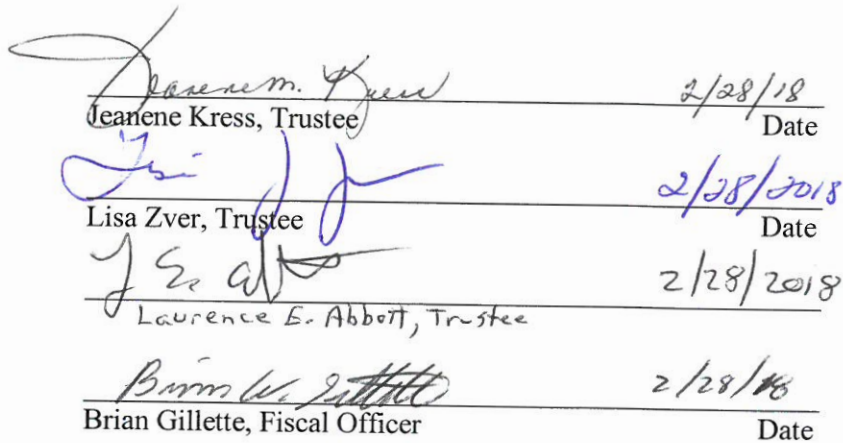 Jeanene M. Kress 2/28/18
Jeanene Kress, Trustee Date
2/28/2018
Lisa Zver, Trustee Date
L E. Abbott 2/28/2018
Laurence E. Abbott, Trustee
Brian W. Gillette 2/28/18
Brian Gillette, Fiscal Officer Date